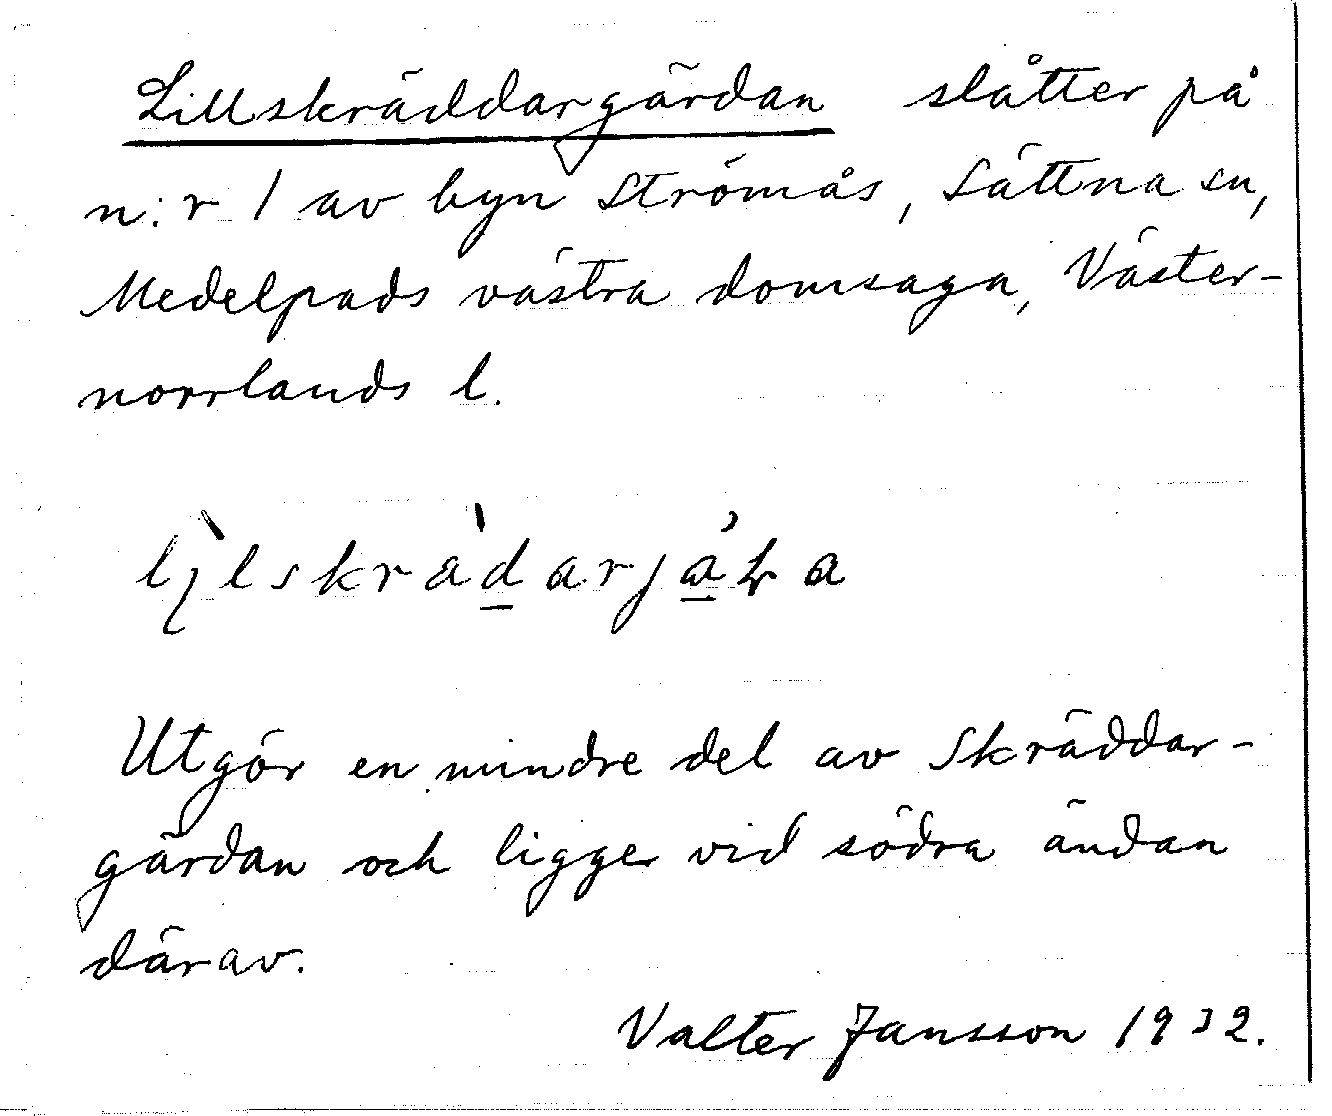 Lillskräddargärdan slåtter på
n:r 1 av byn Strömås, Sättna sn,
Medelpads västra domsaga, Väster-
norrlands l.
Utgör en mindre del av Skräddar-
gärdan och ligger vid södra ändan
därav.
Valter Jansson 1932.